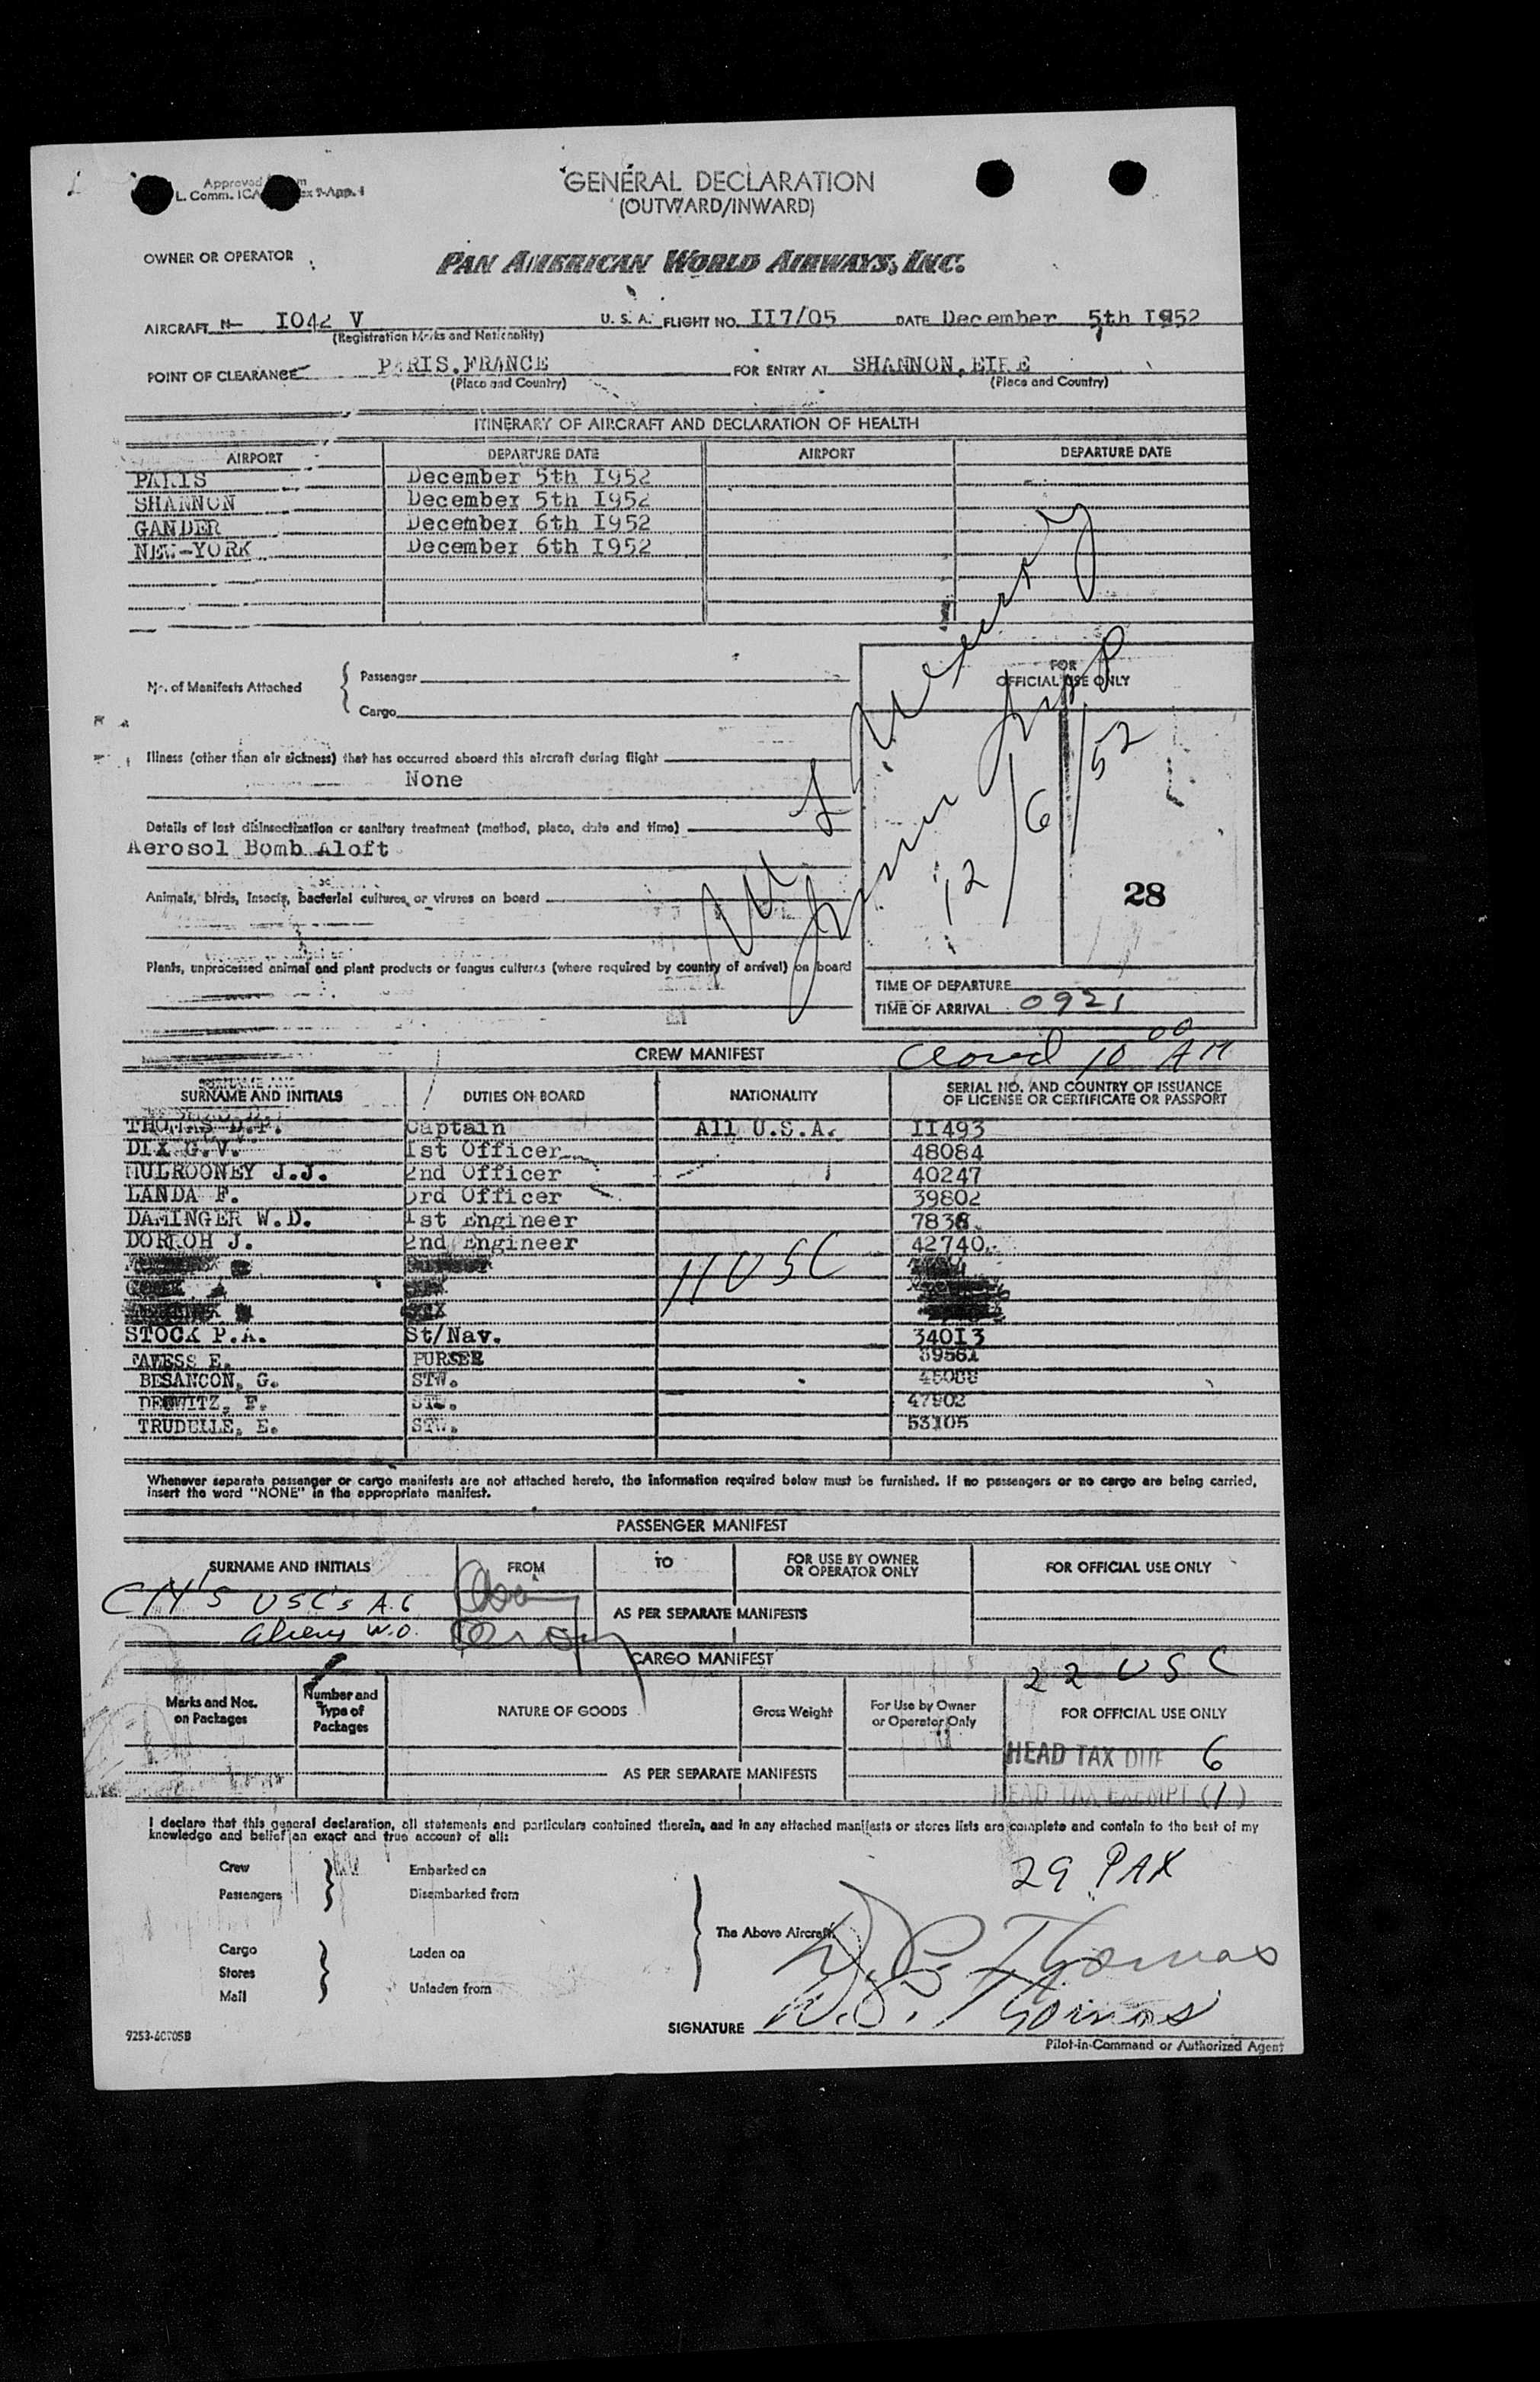 GENERAL DECLARATION
(OUTWARD/INWARD)
OWNER OR OPERATOR :
PAN AMERICAN WORLD AIRWAYS, INC.
AIRCRAFT N- I042 V U. S. A. FLIGHT NO. II7/05 DATE December 5th I952
(Registration Marks and Nationality)
POINT OF CLEARANCE PARIS.FRANCE FOR ENTRY AT SHANNON,EIRE
(Place and Country) (Place and Country)
ITINERARY OF AIRCRAFT AND DECLARATION OF HEALTH
AIRPORT DEPARTURE DATE AIRPORT DEPARTURE DATE
PARIS December 5th I952
SHANNON December 5th I952
GANDER December 6th I952
NEW-YORK December 6th I952
No. of Manifests Attached
Passenger
Cargo
FOR
OFFICIAL USE ONLY
Illness (other than air sickness) that has occurred aboard this aircraft during flight
None
Details of last disinsectization or sanitary treatment (method, place, date and time)
Aerosol Bomb Aloft
12/6/52
28
Animals, birds, insects, bacterial cultures, or viruses on board
Plants, unprocessed animal and plant products or fungus cultures (where required by country of arrival) on board
TIME OF DEPARTURE
TIME OF ARRIVAL 0921
CREW MANIFEST
Closed 10 00 AM
SURNAME AND INITIALS DUTIES ON BOARD NATIONALITY SERIAL NO. AND COUNTRY OF ISSUANCE
OF LICENSE OR CERTIFICATE OR PASSPORT
THOMAS D.P. Captain All U.S.A. II493
DIX G.V. Ist Officer 48084
MULROONEY J.J. 2nd Officer 40247
LANDA F. 3rd Officer 39802
DAMINGER W.D. Ist Engineer 7838
DORTOH J. 2nd Engineer 42740
11 USC
STOCK P.A. St/Nav. 340I3
E. PURSER 39561
BESANCON, G. STW.
F. STW. 47902
TRUDELLE, E. STW. 53105
Whenever separate passenger or cargo manifests are not attached hereto, the information required below must be furnished. If no passengers or no cargo are being carried,
insert the word "NONE" in the appropriate manifest.
PASSENGER MANIFEST
SURNAME AND INITIALS FROM TO FOR USE BY OWNER
OR OPERATOR ONLY FOR OFFICIAL USE ONLY
CN's USC's A.C
Aliens W.O.
AS PER SEPARATE MANIFESTS
CARGO MANIFEST
22 USC
Marks and Nos.
on Packages
Number and
Type of
Packages
NATURE OF GOODS
Gross Weight
For Use by Owner
or Operator Only
FOR OFFICIAL USE ONLY
HEAD TAX DUE 6
HEAD TAX EXEMPT (1)
AS PER SEPARATE MANIFESTS
I declare that this general declaration, all statements and particulars contained therein, and in any attached manifests or stores lists are complete and contain to the best of my
knowledge and belief an exact and true account of all:
29 PAX
Crew Embarked on
Passengers Disembarked from
The Above Aircraft
Cargo Laden on
Stores
Mail Unladen from
D. P. Thomas
SIGNATURE D.P. Thomas
Pilot-in-Command or Authorized Agent